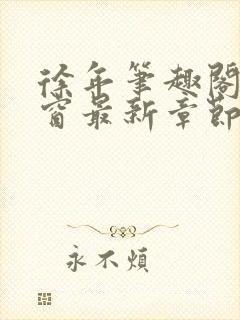 徐年筆趣閣
窗最新章節
永不煩